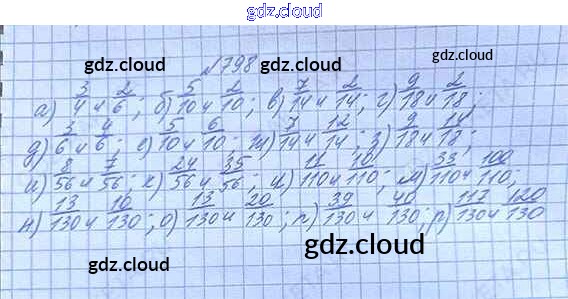 gdz.cloud
gdz.cloud №798 gdz.cloud
а) 3/4 и 2/6; б) 5/10 и 2/10; в) 7/14 и 2/14; г) 9/18 и 2/18;
д) 3/6 и 4/6; е) 5/10 и 6/10; ж) 7/14 и 12/14; з) 9/18 и 14/18;
и) 8/56 и 7/56; к) 24/56 и 35/56; л) 11/110 и 10/110; м) 33/110 и 100/110;
н) 13/130 и 10/130; о) 13/130 и 20/130; п) 39/130 и 40/130; р) 117/130 и 120/130
gdz.cloud gdz.cloud